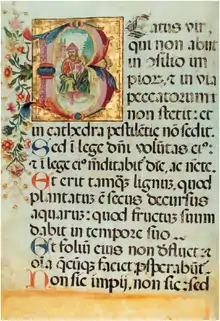 Beatus vir,
qui non abiit
in cōsilio im
pioꝝ, ⁊ in via
peccatorum
non stetit: et
in cathedra pestilētię nō sedit.
Sed ī lege dn̄i volūtas eiꝰ:
⁊ ī lege eiꝰ meditabit̄ die, ac nēte.
Et erit tamq̄ȝ lignuȝ, quod
plantatuȝ ē secus decursus
aquaruȝ: quod fructuȝ suum
dabit in tempore suo.
Et foliuȝ eius non dēfluet: ⁊
oīa q̄cūqȝ faciet, ꝓsperabūt̄.
Non sic impij, non sic: sed